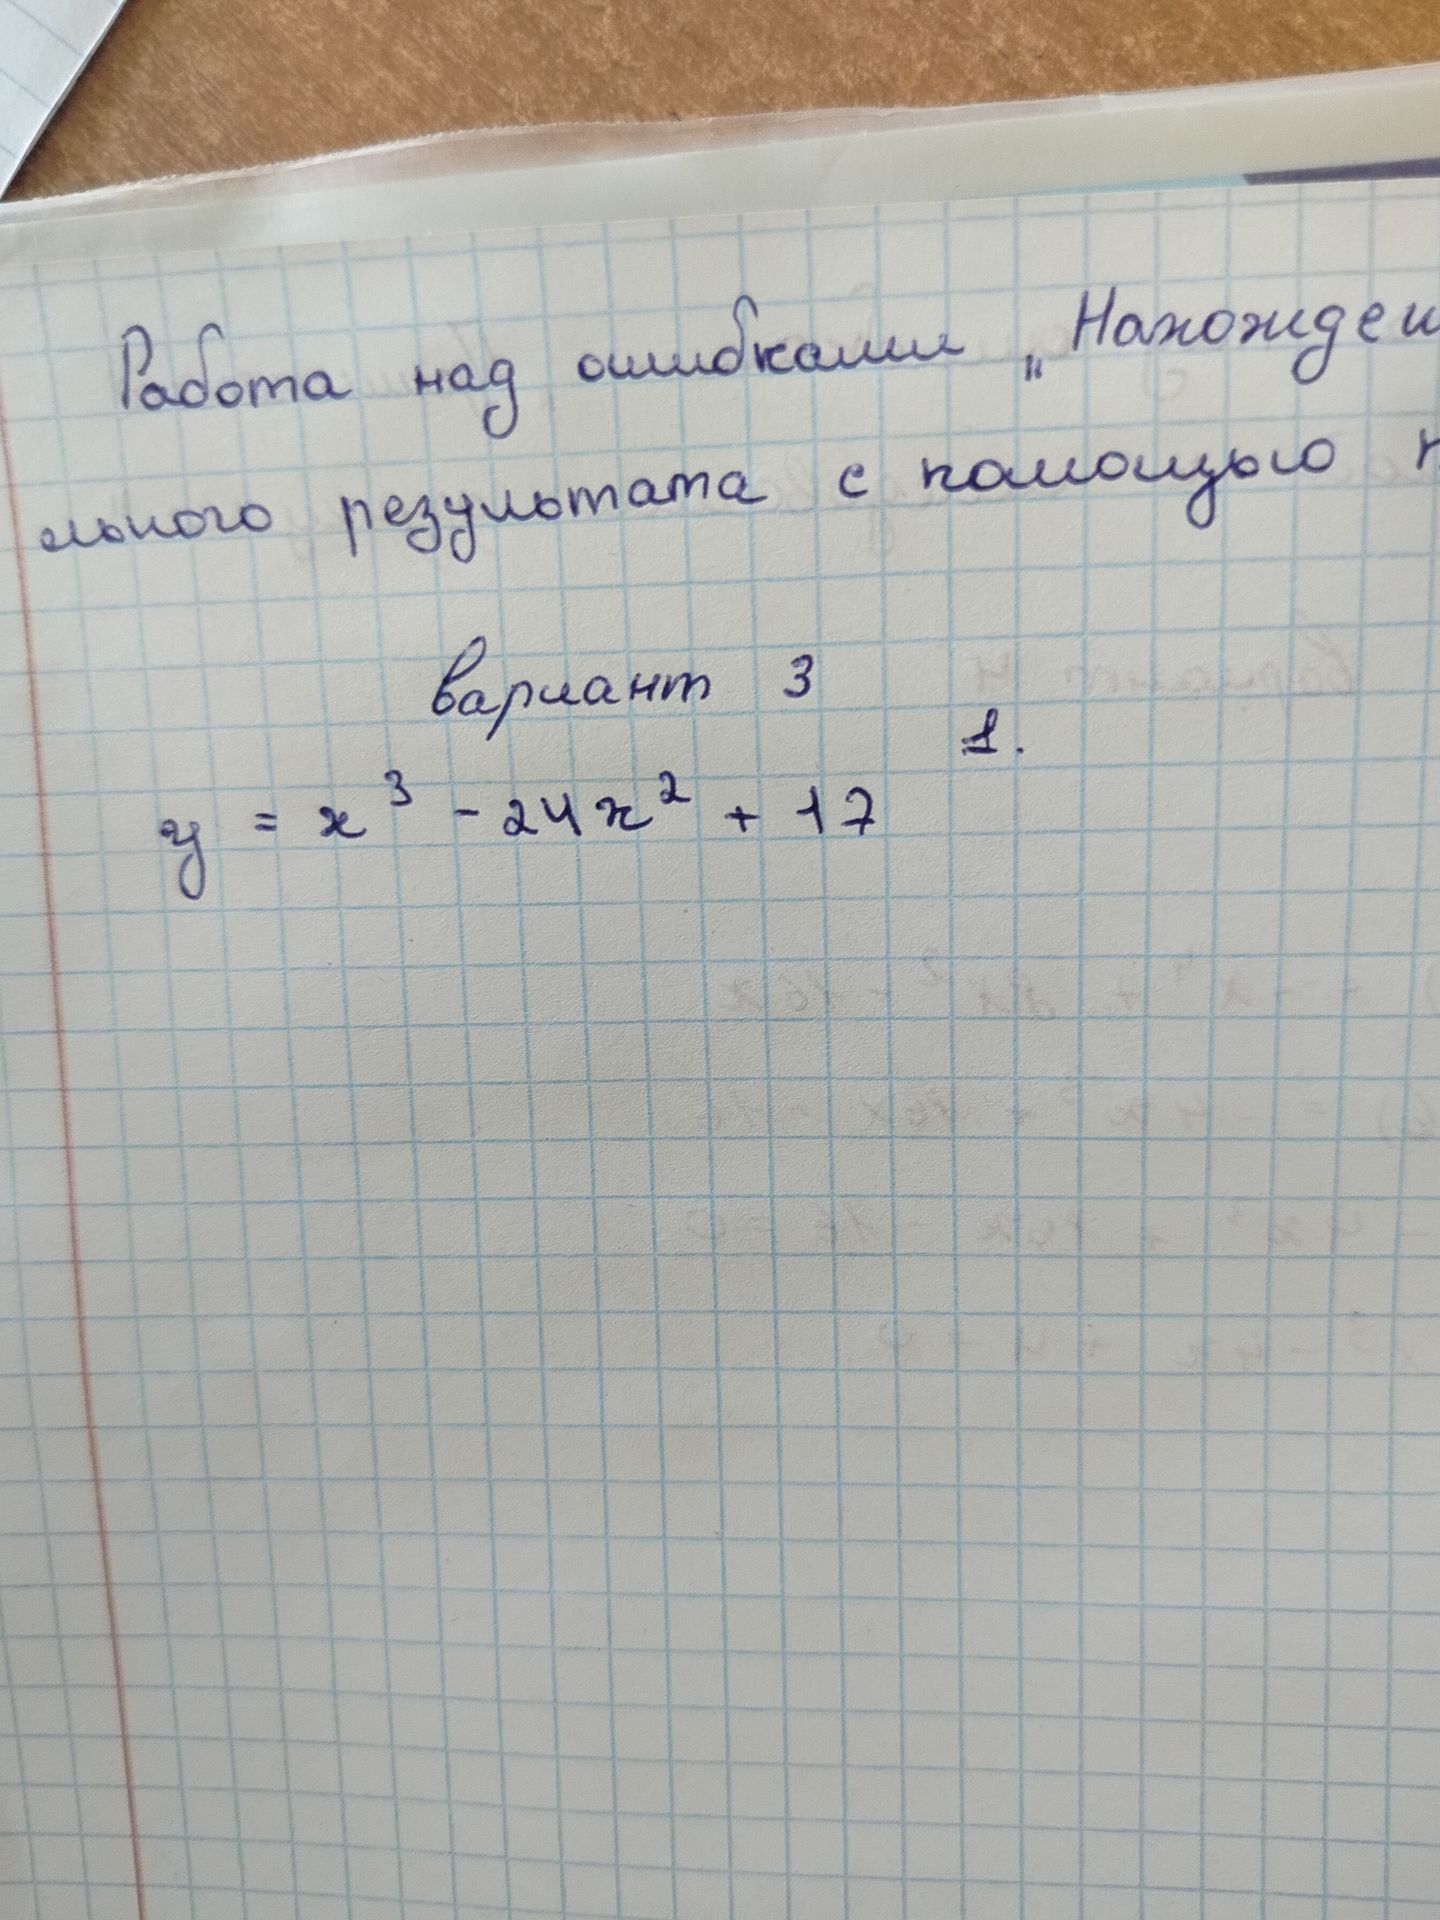 Работа над ошибками „Нахожден
льного результата с помощью п
вариант 3
1.
y = x³ - 24x² + 17